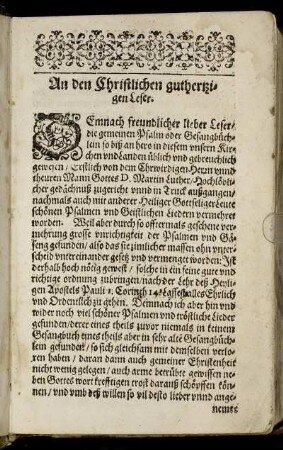 An den Christlichen guthertzi-
gen Leser.
DEmnach freundlicher lieber Leser/
die gemeinen Psalm oder Gesangbüch-
lein so biß an hero in diesem unsern Kir-
chen vnd Landen üblich und gebreuchlich
gewesen / Erstlich von dem Ehrwirdigen Herrn vnnd
theuren Mann Gottes D. Martin Luther/ Hochlöbli-
cher gedächnuß zugericht vnnd in Truck außgangen/
nachmals auch mit anderer Heiliger Gottseliger Leute
schönen Psalmen und Geistlichen Liedern vermehret
worden. Weil aber durch so offtermals geschene ver-
mehrung grosse vnrichtigkeit der Psalmen und Gä-
seng gefunden/ also das sie zimlicher massen ohn vnter-
scheid vntereinander gesetz und vermenget worden: Ist
derhalb hoch nötig gewest / solche in ein feine gute und
richtige ordnung zubringen/ nach der Lehr deß Herrli-
gen Apostels Pauli 1. Corinth 14. Es alles Ehrlich
und Ordentlich zu gehen. Demnach ich aber hin vnd
wider noch viel schöner Psalmen und tröstliche Lieder
gefunden/ derer eines theils zuvor niemals in keinem
Gesangbuch eines theils aber in sehr alte Gesangbüch-
lein gefundert / so sich gleichsam mit demselben verlo-
ren haben / daran dann auch gemeiner Christenheit
nicht wenig gelegen / auch arme betrübte gewissen ne-
ben Gottes wort krefftigen trost darauß schöpffen kön-
nen / und vmb deß willen so vil desto lieber vnnd ange-
nemer